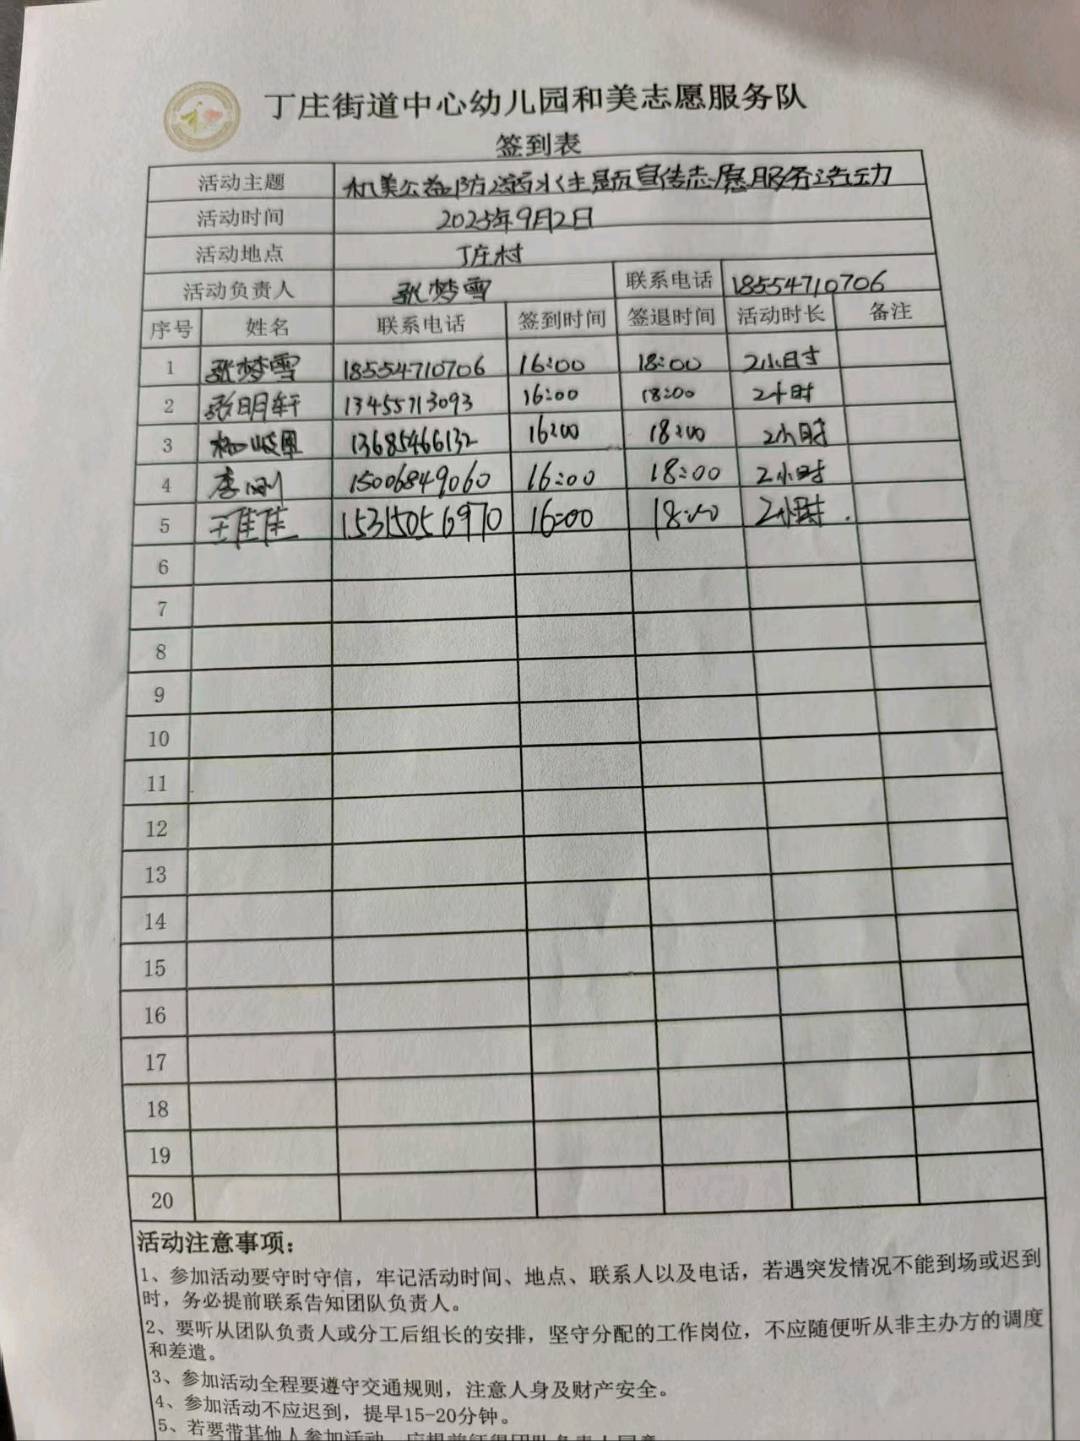 丁庄街道中心幼儿园和美志愿服务队
签到表
活动主题 和美公益防溺水主题宣传志愿服务活动
活动时间 2025年9月2日
活动地点 丁庄村
活动负责人 张梦雪 联系电话 18554710706
序号 姓名 联系电话 签到时间 签退时间 活动时长 备注
1 张梦雪 18554710706 16:00 18:00 2小时
2 张明轩 13455713093 16:00 18:00 2小时
3 13685466132 16:00 18:00 2小时
4 李刚 15006849060 16:00 18:00 2小时
5 王佳佳 15315056970 16:00 18:00 2小时.
6
7
8
9
10
11
12
13
14
15
16
17
18
19
20
活动注意事项：
1、参加活动要守时守信，牢记活动时间、地点、联系人以及电话，若遇突发情况不能到场或迟到
时，务必提前联系告知团队负责人。
2、要听从团队负责人或分工后组长的安排，坚守分配的工作岗位，不应随便听从非主办方的调度
和差遣。
3、参加活动全程要遵守交通规则，注意人身及财产安全。
4、参加活动不应迟到，提早15-20分钟。
5、若要带其他人参加活动，应提前征得团队负责人同意